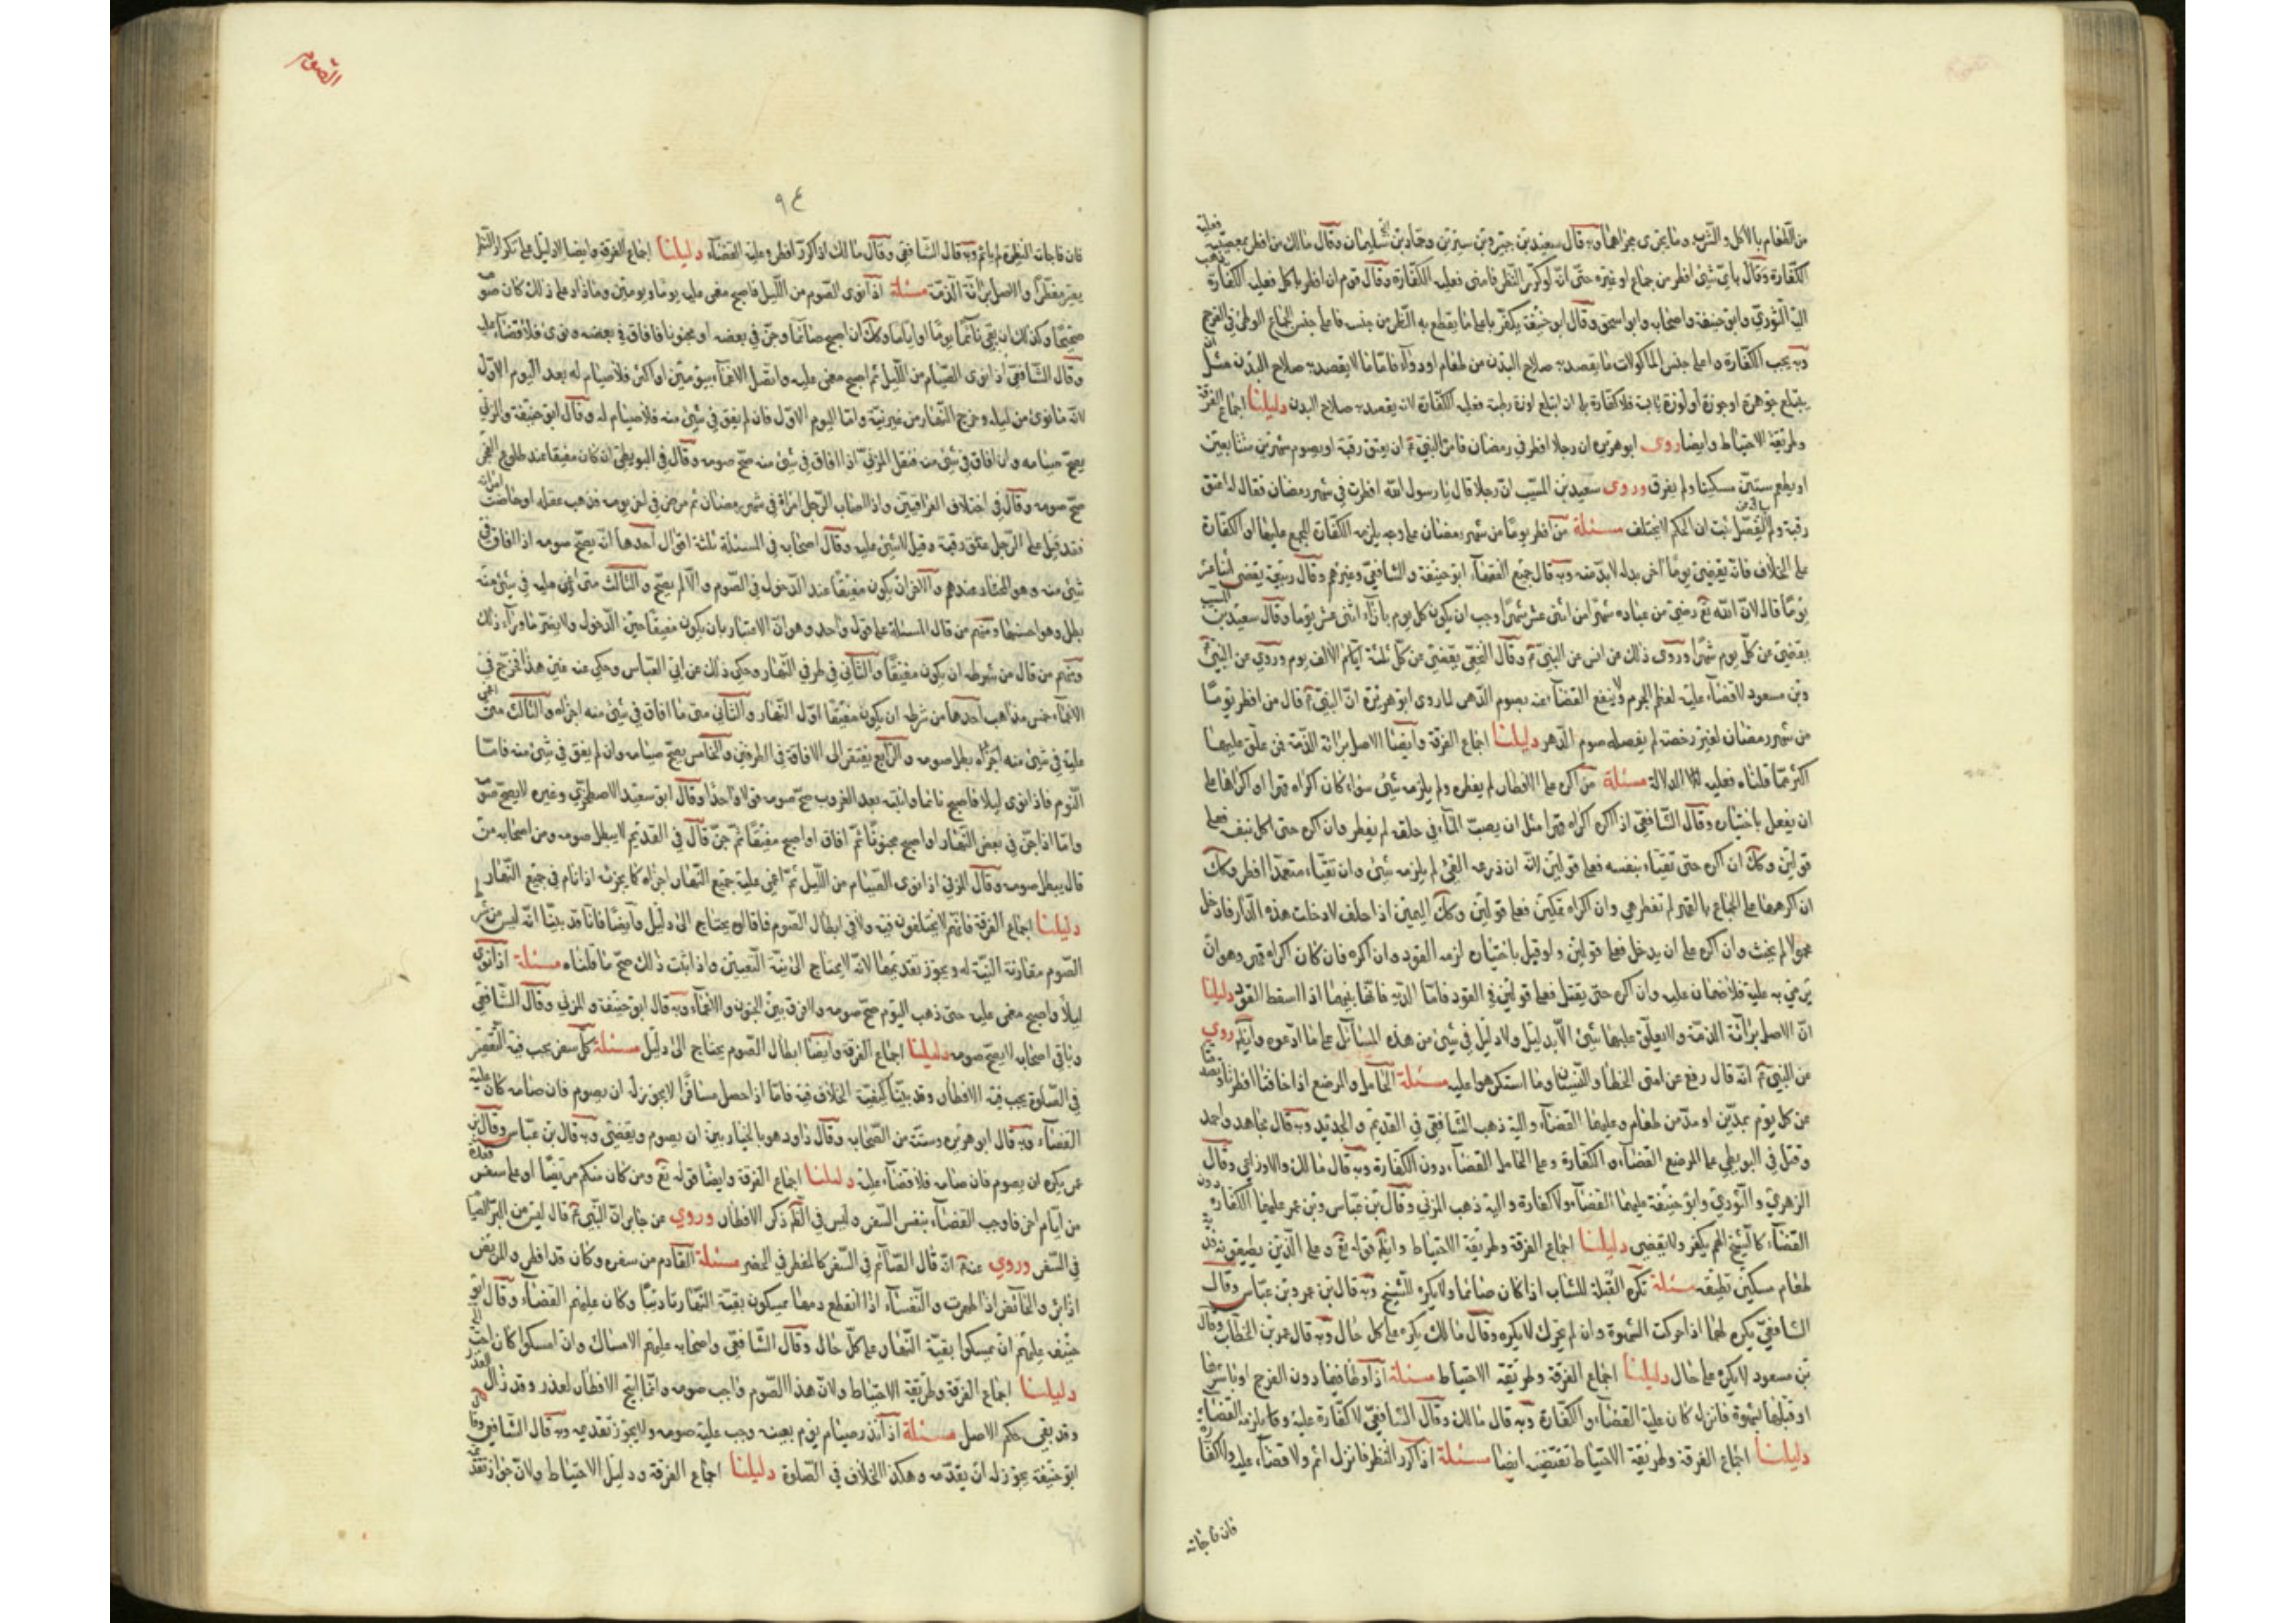 من الطعام بالاكل والشرب وما يجرى مجراهما وبه قال سعيد بن جبير وبن سيرين وحماد بن ابى سليمان وقال مالك من افطر بمعصية فعليه
الكفارة وقال باى شئ افطر من جماع او غيره حتى انه لو كرر النظر فامنى فعليه الكفارة وقال قوم ان افطر باكل فعليه الكفارة ذهب
اليه الثوري وابو حنيفة واصحابه وابو اسحق وقال ابو حنيفة يكفر باعلى ما يقطع به النظر من جنسه فاعلى جنس الجماع الوطئ في الفرج
وبه يجب الكفارة واعلى جنس الماكولات ما يقصد به صلاح البدن من طعام او دواء فاما ما لا يقصد به صلاح البدن مثل ان
يبتلع جوهرة او جوزة او لوزة يابسة فلا كفارة بلى ان ابتلع لوزة رطبة فعليه الكفارة لانه يقصد به صلاح البدن دليلنا اجماع الفرقة
وطريقة الاحتياط وايضا روى ابو هريرة ان رجلا افطر في رمضان فامر النبي ان يعتق رقبة او يصوم شهرين متتابعين
او يطعم ستين مسكينا ولم يفرق وروى سعيد بن المسيب ان رجلا قال يا رسول الله افطرت في شهر رمضان فقال له اعتق
رقبة ولم يستفصل ثبت ان الحكم لا يختلف مسئلة من افطر يوما من شهر رمضان على وجه يلزمه الكفارة المجمع عليها او الكفارة
على الخلاف فانه يقضى يوما اخر بدله لا بد منه وبه قال جميع الفقهاء ابو حنيفة والشافعي وغيرهم وقال ربيعة يقضى اثنا عشر
يوما قال لان الله تع رضي من عباده شهرا من اثنى عشر شهرا وجب ان يكون كل يوم بازاء اثنى عشر يوما وقال سعيد بن المسيب
يقضى عن كل يوم شهرا وروى ذلك عن انس عن النبي وقال النخعي يقضى عن كل ثلثة ايام الالف يوم وروي عن النبي
وبن مسعود لا قضاء عليه لعظم الجرم ولا ينفع القضاء عنه بصوم الدهر لما روى ابو هريرة ان النبي قال من افطر يوما
من شهر رمضان لغير رخصة لم يقضه صوم الدهر دليلنا اجماع الفرقة وايضا الاصل برائة الذمة فمن علق عليهما
اكثر مما قلناه فعليه الدلالة مسئلة من اكره على الافطار لم يفطر ولم يلزمه شئ سواء كان اكراه قهر او اكراها على
ان يفعل باختياره وقال الشافعي اذا اكره اكراه قهر مثل ان يصب الماء في حلقه لم يفطر وان اكره حتى اكل بنفسه فعلى
قولين وكك ان اكره حتى تقيأ بنفسه فعلى قولين لانه ان ذرعه القئ لم يلزمه شئ وان تقيأ متعمدا افطر وكك
ان اكرهها على الجماع بالقهر لم تفطر هي وان اكراه تمكين فعلى قولين وكك اليمين اذا حلف لا دخلت هذه الدار فادخل
محمولا لم يحنث وان اكره على ان يدخل فعلى قولين ولو قيل باختياره لزمه القود وان اكره فان كان اكراه قهر وهو ان
يرمي به عليه فلا ضمان عليه وان اكره حتى يقتل فعلى قولين في القود فاما الدية فانها بينهما اذا اسقط القود دليلنا
ان الاصل برائة الذمة ولا يعلق عليها شئ الا بدليل ولا دليل في شئ من هذه المسائل على ما ادعوه وايضا روي
عن النبي انه قال رفع عن امتى الخطأ والنسيان وما استكرهوا عليه مسئلة الحامل والمرضع اذا خافتا افطرتا وتصدقتا
عن كل يوم بمدين او مد من طعام وعليهما القضاء واليه ذهب الشافعي في القديم والجديد وبه قال مجاهد واحمد
وقال في البويطي على المرضع القضاء والكفارة وعلى الحامل القضاء دون الكفارة وبه قال مالك والاوزاعي وقال
الزهري والثوري وابو حنيفة عليهما القضاء ولا كفارة واليه ذهب المزني وقال بن عباس وبن عمر عليهما الكفارة دون
القضاء كالشيخ الهم يكفر ولا يقضي دليلنا اجماع الفرقة وطريقة الاحتياط وايضا قوله تع وعلى الذين يطيقونه فدية
طعام مسكين تطيقه مسئلة تكره القبلة للشاب اذا كان صائما ولا يكره للشيخ وبه قال بن عمر وبن عباس وقال
الشافعي يكره لهما اذا حركت الشهوة وان لم تحرك لا يكره وقال مالك يكره على كل حال وبه قال عمر بن الخطاب وقال
بن مسعود لا يكره على حال دليلنا اجماع الفرقة وطريقة الاحتياط مسئلة اذا وطأ فيما دون الفرج او باشرها
او قبلها بشهوة فانزل كان عليه القضاء والكفارة وبه قال مالك وقال الشافعي لا كفارة عليه وقال يلزمه القضاء
دليلنا اجماع الفرقة وطريقة الاحتياط تقتضيه ايضا مسئلة اذا كرر النظر فانزل اثم ولا قضاء عليه ولا كفارة
فان فاجاته
الصوم
٩٤
فان فاجاته النظرة لم ياثم وبه قال الشافعي وقال مالك اذا كرر افطر وعليه القضاء دليلنا اجماع الفرقة وايضا لا دليل على تكرار النظر
يعتبر مفطرا والاصل برائة الذمة مسئلة اذا نوى الصوم من الليل فاصبح مغمى عليه يوما ويومين وما زاد على ذلك كان صومه
صحيحا وكذلك ان بقى نائما يوما او اياما وكك ان اصبح صائما وجن في بعضه او مجنونا فافاق في بعضه ونوى فلا قضاء عليه
وقال الشافعي اذا نوى الصيام من الليل ثم اصبح مغمى عليه واتصل الاغماء يومين او اكثر فلا صيام له بعد اليوم الاول
لانه ما نوى من ليله وخرج النهار من غير نية واما اليوم الاول فان لم يفق في شئ منه فلا صيام له وقال ابو حنيفة والمزني
يصح صيامه وان افاق في شئ منه فنقل المزني اذا افاق في شئ منه صح صومه وقال في البويطي ان كان مفيقا عند طلوع الفجر
صح صومه وقال في اختلاف العراقيين واذا اصاب الرجل امرأة في شهر رمضان ثم مرض في اخر يومه فذهب عقله او حاضت امرأته
فقد قيل على الرجل عتق رقبة وقيل لا شئ عليه وقال اصحابه في المسئلة ثلثة اقوال احدها انه يصح صومه اذا افاق في
شئ منه وهو المختار عندهم والاخر ان يكون مفيقا عند الدخول في الصوم والا لم يصح والثالث متى اغمى عليه في شئ منه
بطل وهو احسنها ومنهم من قال المسئلة على قول واحد وهو ان الاعتبار بان يكون مفيقا حين الدخول ولا يضر ما وراء ذلك
ومنهم من قال من شرطه ان يكون مفيقا والثاني في طرفي النهار وحكى ذلك عن ابي العباس وحكي عنه غير هذا فخرج في
الاغماء خمس مذاهب احدها من شرطه ان يكون مفيقا اول النهار والثاني متى ما افاق في شئ منه اجزأه والثالث متى اغمي
عليه في شئ منه بطل صومه والرابع يفتقر الى الافاقة في الطرفين والخامس يصح صيامه وان لم يفق في شئ منه فاما
النوم فاذا نوى ليلا فاصبح نائما وانتبه بعد الغروب صح صومه قولا واحدا وقال ابو سعيد الاصطخري وغيره لا يصح صومه
واما اذا جن في بعض النهار او اصبح مجنونا ثم افاق او اصبح مفيقا ثم جن قال في القديم لا يبطل صومه ومن اصحابه من
قال يبطل صومه وقال المزني اذا نوى الصيام من الليل ثم اغمى عليه جميع النهار اجزاه كما يجزئه اذا نام في جميع النهار
دليلنا اجماع الفرقة فانهم لا يختلفون فيه ولا في ابطال الصوم فافاقه يحتاج الى دليل وايضا فانا قد بينا انه ليس من شرط
الصوم مقارنة النية له ويجوز تقديمها لانه لا يحتاج الى نية التعيين واذا ثبت ذلك صح ما قلناه مسئلة اذا نوى
ليلا واصبح مغمى عليه حتى ذهب اليوم صح صومه ولا فرق بين الجنون والاغماء وبه قال ابو حنيفة والمزني وقال الشافعي
وباقي اصحابه لا يصح صومه دليلنا اجماع الفرقة وايضا ابطال الصوم يحتاج الى دليل مسئلة كل سفر يجب فيه التقصير
في الصلوة يجب فيه الافطار وقد بينا كيفية الخلاف فيه فاما اذا حصل مسافرا لا يجوز له ان يصوم فان صامه كان عليه
القضاء وبه قال ابو هريرة وستة من الصحابة وقال داود هو بالخيار بين ان يصوم ويقضى وبه قال بن عباس وقال بن
عمر يكره ان يصوم فان صامه فلا قضاء عليه دليلنا اجماع الفرقة وايضا قوله تع ومن كان منكم مريضا او على سفر فعدة
من ايام اخر فاوجب القضاء بنفس السفر وليس في الظم ذكر الافطار وروي عن جابر ان النبي قال ليس من البر الصيام
في السفر وروي عنه انه قال الصائم في السفر كالمفطر في الحضر مسئلة القادم من سفره وكان قد افطر والمريض
اذا برئ والحائض اذا طهرت والنفساء اذا انقطع دمها يمسكون بقية النهار تاديبا وكان عليهم القضاء وقال ابو
حنيفه عليهم ان يمسكوا بقية النهار على كل حال وقال الشافعي واصحابه عليهم الامساك وان امسكوا كان احب اليه
دليلنا اجماع الفرقة وطريقة الاحتياط ولان هذا الصوم واجب صومه وانما ابيح الافطار لعذر وقد زال العذر
وقد بقى حكم الاصل مسئلة اذا نذر صيام يوم بعينه وجب عليه صومه ولا يجوز تقديمه وبه قال الشافعي وقال
ابو حنيفة يجوز له ان يقدمه وهكذا الخلاف في الصلوة دليلنا اجماع الفرقة ودليل الاحتياط ولان جواز تقديمه